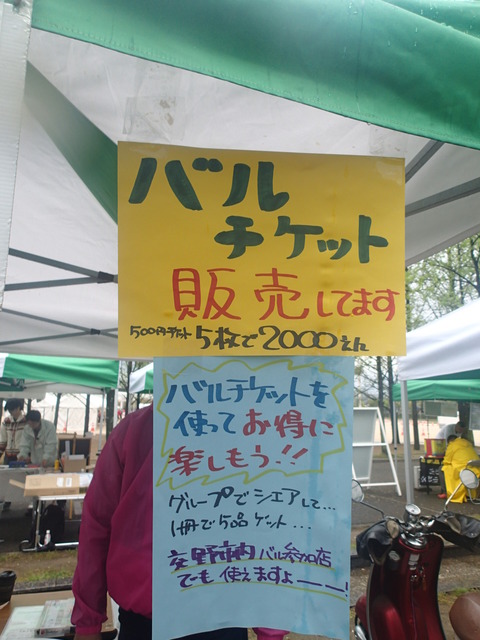 バル
チケット
販売してます
500円チケット 5枚で2000えん
バルチケットを
使ってお得に
楽しもう!!
グループでシェアして...
1冊で5品ゲット...
交野市内バル参加店
でも使えますよーー!